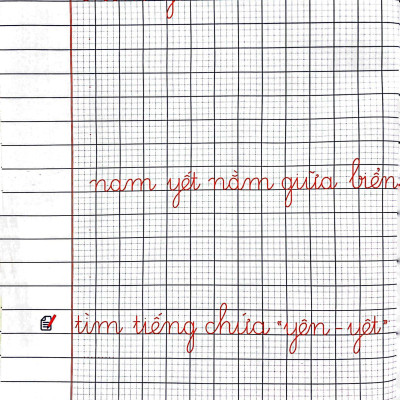 nam yết nằm giữa biển.
tìm tiếng chứa "yên - yêt"